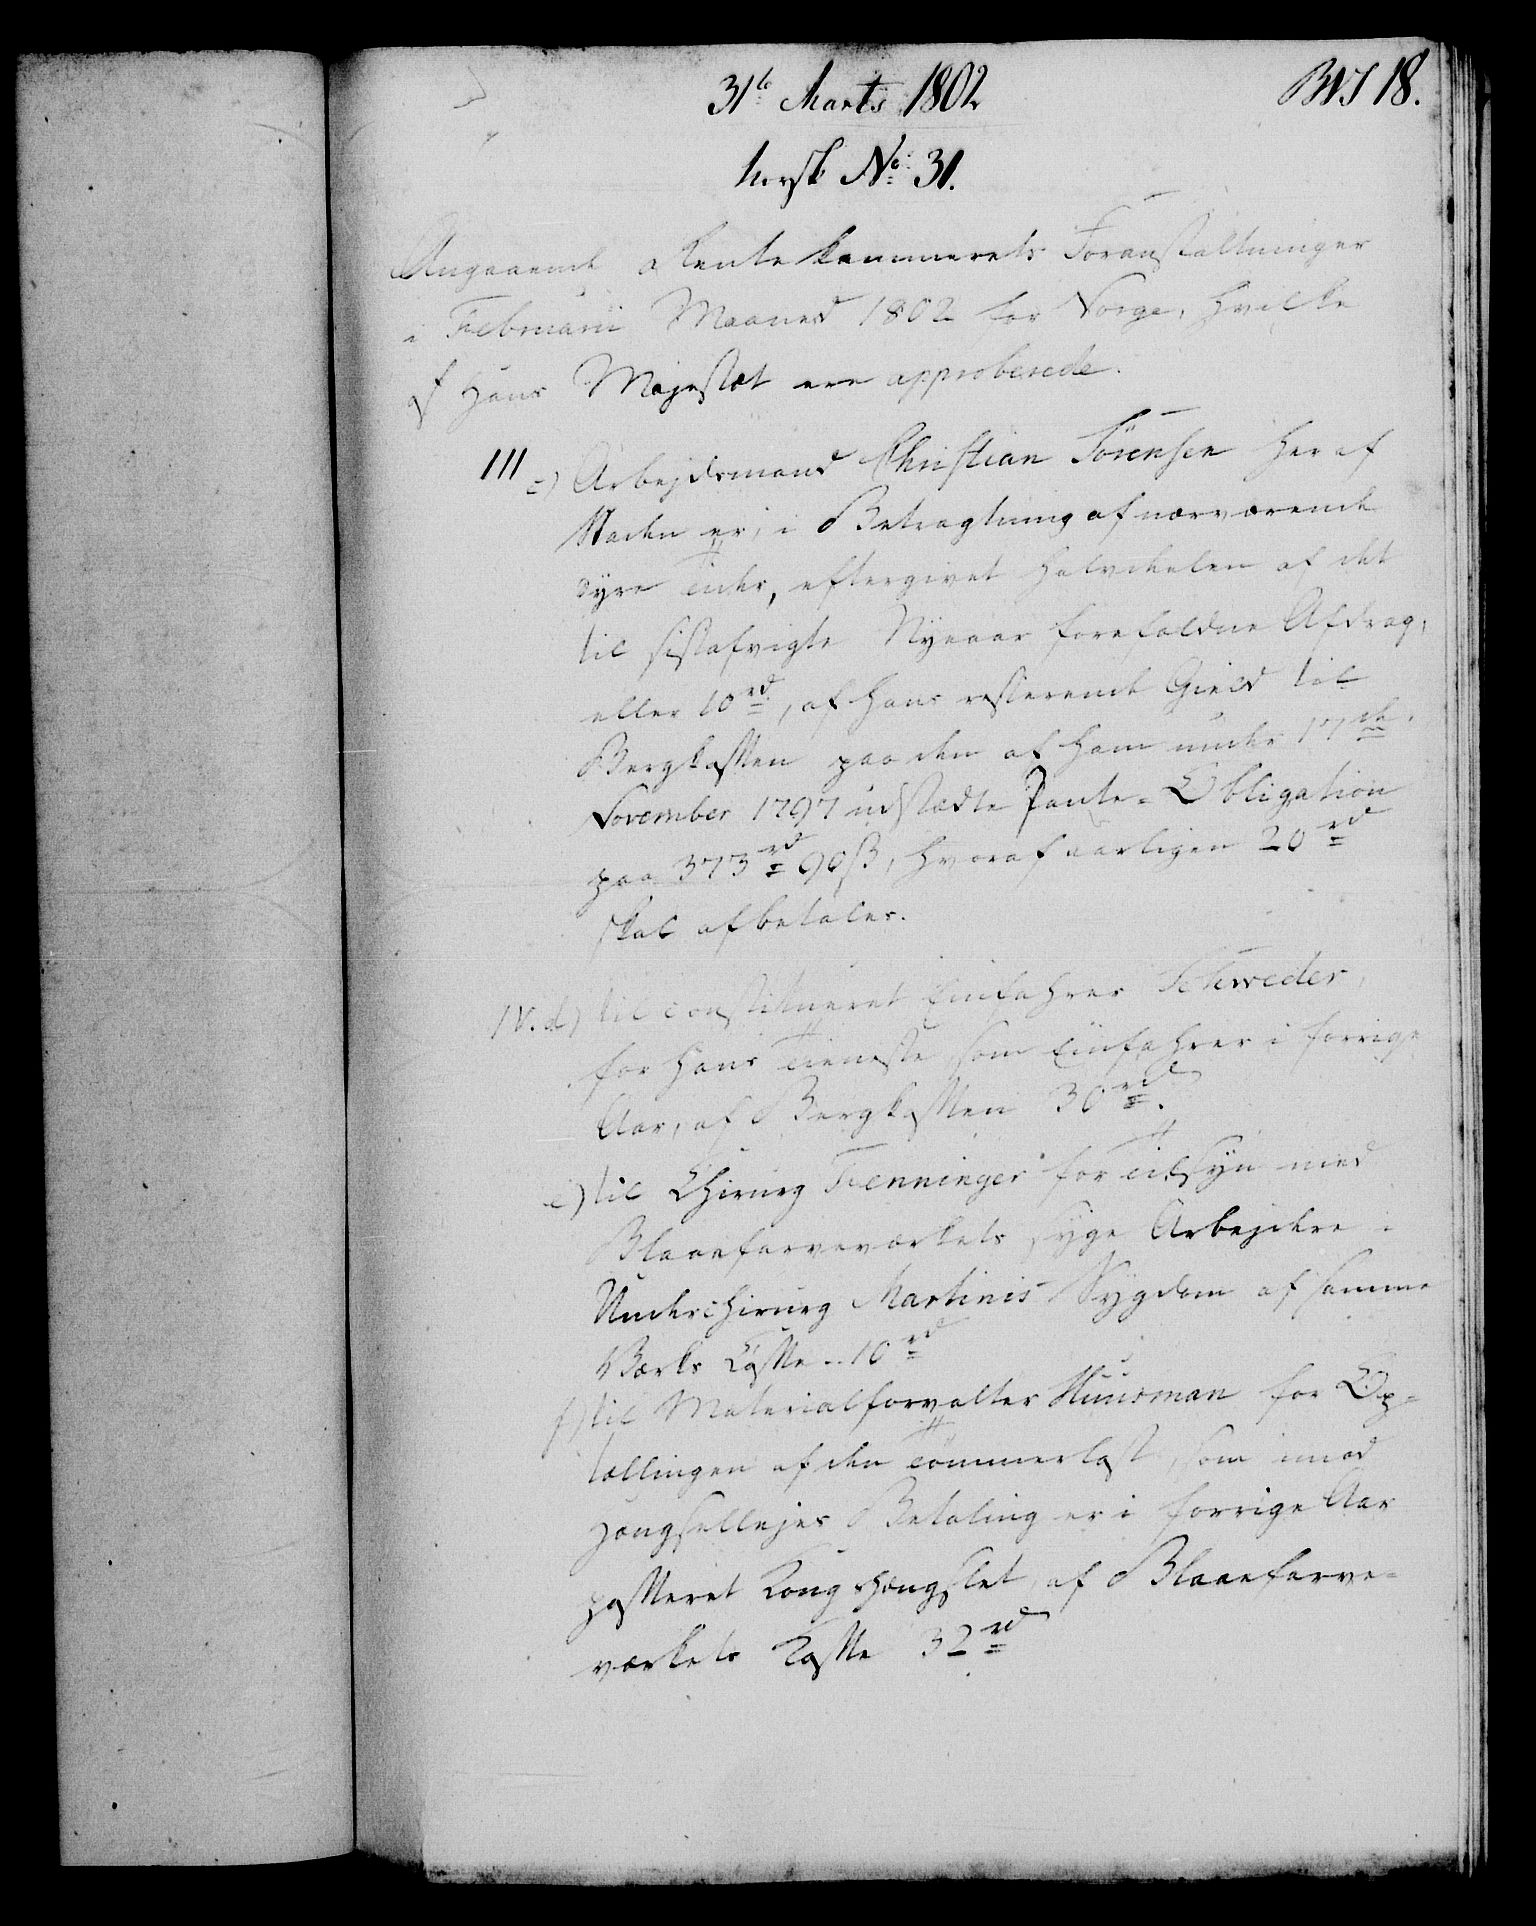 31te Marts 1802
BVJ 18.
norsk No. 31.
Angaaende Rentekammerets Foranstaltninger
i Februarii Maaned 1802 for Norge, hvilke
af Hans Majestæt ere approberede.
III c) Arbejdsmand Christian Sörensen her af
Staden er, i Betragtning af nærværende
dyre Tider, eftergivet Halvdeelen af det
til sistafvigte Nyeaar forefaldne Afdrag,
eller 10 rd, af hans resterende Gield til
Bergkassen paa den af ham under 17de
November 1797 udstædte Pante-Obligation
paa 373 rd 90 ß, hvoraf aarligen 20 rd
skal afbetales.
IV. d) til constitueret Einfahrer Schweder,
for hans Tieneste som Einfahrer i forrige
Aar, af Bergkassen 30 rd.
e) til Chirurg Fenninger for Tilsyn med
Blaaefarveværkets syge Arbejdere i
Underchirurg Martinis Sygdom af samme
Værks Casse .. 10 rd
f) til Materialforvalter Huusman for Op-
tællingen af den Tömmerlast, som imod
Betaling er i forrige Aar
passeret af Blaaefarve-
værkets Casse 32 rd